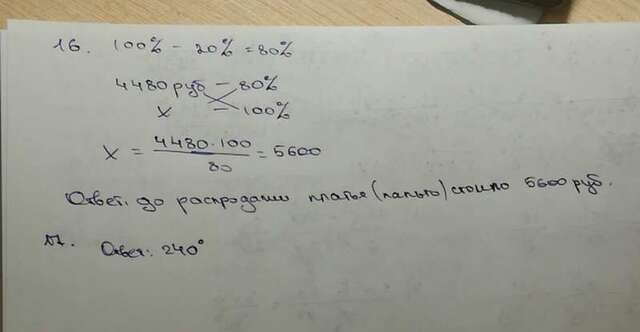 16. 100% - 20% = 80%
4480 руб - 80%
x - 100%
x = 4480·100 / 80 = 5600
Ответ: до распродажи платья (пальто) стоило 5600 руб.
17. Ответ: 240°